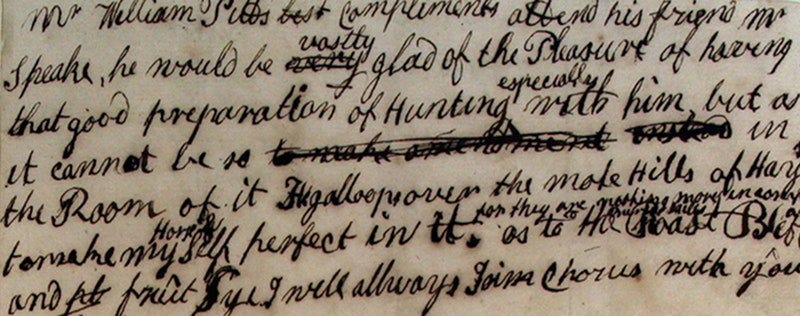 Mr William Pitts best Compliments attend his friend Mr
Speake, he would be very vastly glad of the Pleasure of having
that good preparation of Hunting especially with him, but as
it cannot be so to make amendment instead in
the Room of it He galloops over the mole Hills of Hay
to make my Horse self perfect in it, for they are nothing more in as to the Roast Beef
and fruit Pye I will allways Join Chorus with you